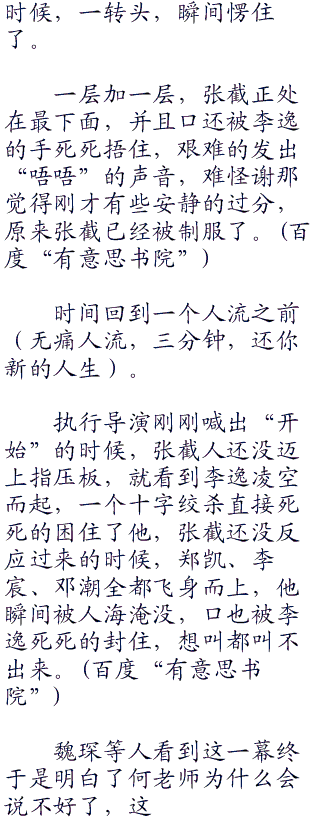 时候，一转头，瞬间愣住
了。
一层加一层，张截正处
在最下面，并且口还被李逸
的手死死捂住，艰难的发出
“唔唔”的声音，难怪谢那
觉得刚才有些安静的过分，
原来张截已经被制服了。(百
度“有意思书院”)
时间回到一个人流之前
（无痛人流，三分钟，还你
新的人生）。
执行导演刚刚喊出“开
始”的时候，张截人还没迈
上指压板，就看到李逸凌空
而起，一个十字绞杀直接死
死的困住了他，张截还没反
应过来的时候，郑凯、李
宸、邓潮全都飞身而上，他
瞬间被人海淹没，口也被李
逸死死的封住，想叫都叫不
出来。(百度“有意思书
院”)
魏琛等人看到这一幕终
于是明白了何老师为什么会
说不好了，这